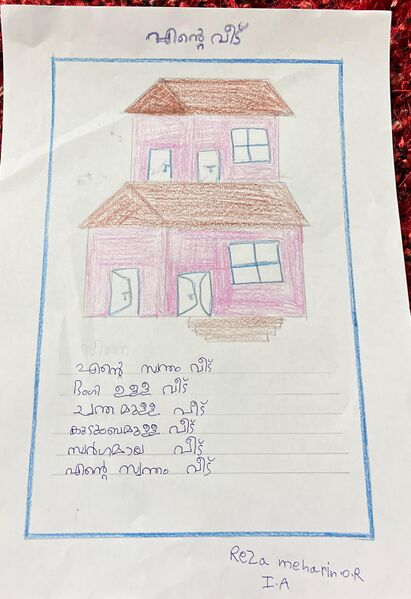 എന്റെ വീട്
എന്റെ സ്വന്തം വീട്
ഭംഗി ഉള്ള വീട്
ചന്തമുള്ള വീട്
കുടുംബമുള്ള വീട്
സ്വർഗമായ വീട്
എന്റെ സ്വന്തം വീട്
Reza meharin.O.R
I.A